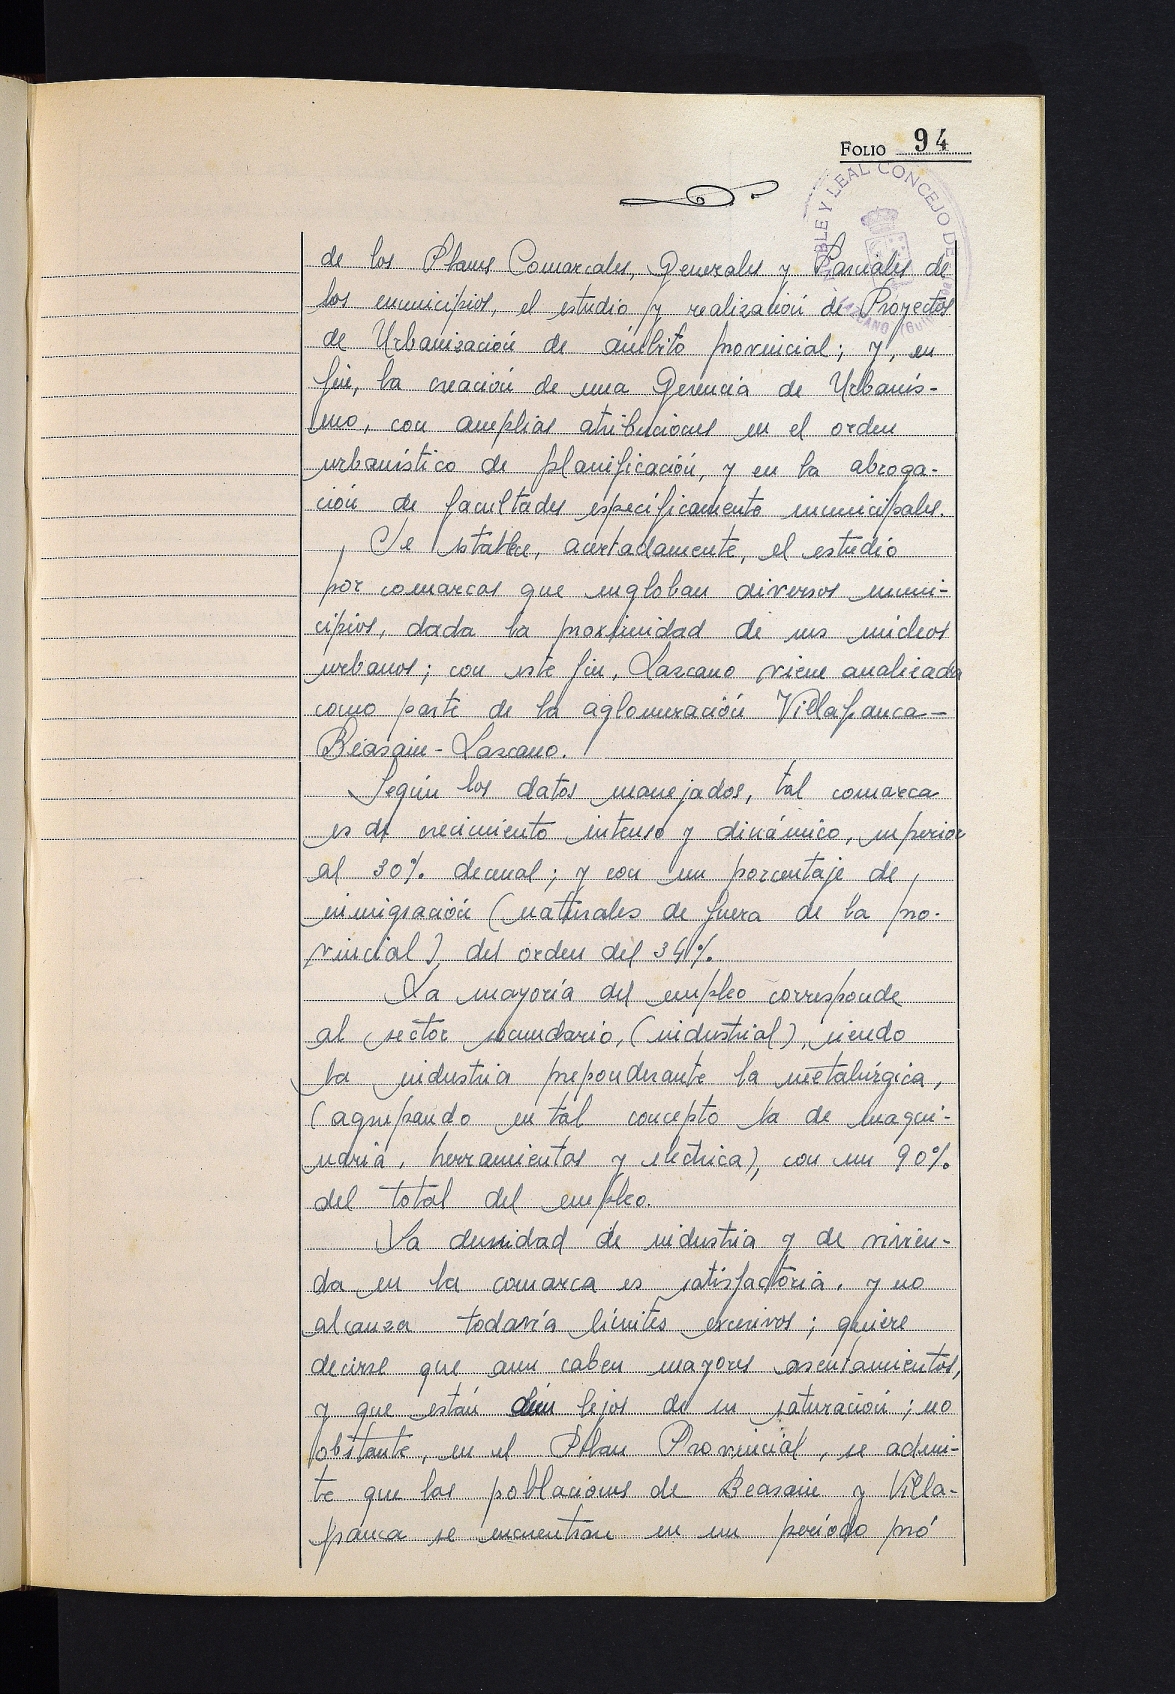 FOLIO 94
NOBLE Y LEAL CONCEJO DE LAZCANO (Guipúzcoa)
de los Planes Comarcales, Generales y Parciales de
los municipios, el estudio y realización de Proyectos
de Urbanización de ámbito provincial; y, en
fin, la creación de una Gerencia de Urbanis-
mo, con amplias atribuciones en el orden
urbanístico de planificación, y en la abroga-
ción de facultades específicamente municipales.
Se establece, acertadamente, el estudio
por comarcas que engloban diversos muni-
cipios, dada la proximidad de sus núcleos
urbanos; con este fin, Lazcano viene analizada
como parte de la aglomeración Villafranca-
Beasain-Lazcano.
Según los datos manejados, tal comarca
es de crecimiento intenso y dinámico, superior
al 30% decenal; y con un porcentaje de
inmigración (naturales de fuera de la pro-
vincial) del orden del 34%.
La mayoría del empleo corresponde
al sector secundario, (industrial), siendo
la industria preponderante la metalúrgica,
(agrupando en tal concepto la de maqui-
naria, herramientas y eléctrica), con un 90%
del total del empleo.
La densidad de industria y de vivien-
da en la comarca es satisfactoria, y no
alcanza todavía límites excesivos; quiere
decirse que aun caben mayores asentamientos,
y que están aún lejos de su saturación; no
obstante, en el Plan Provincial, se admi-
te que las poblaciones de Beasain y Villa-
franca se encuentran en un período pró